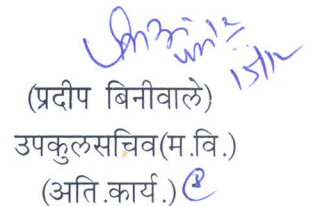 15/12
(प्रदीप बिनीवाले)
उपकुलसचिव(म.वि.)
(अति.कार्य.)